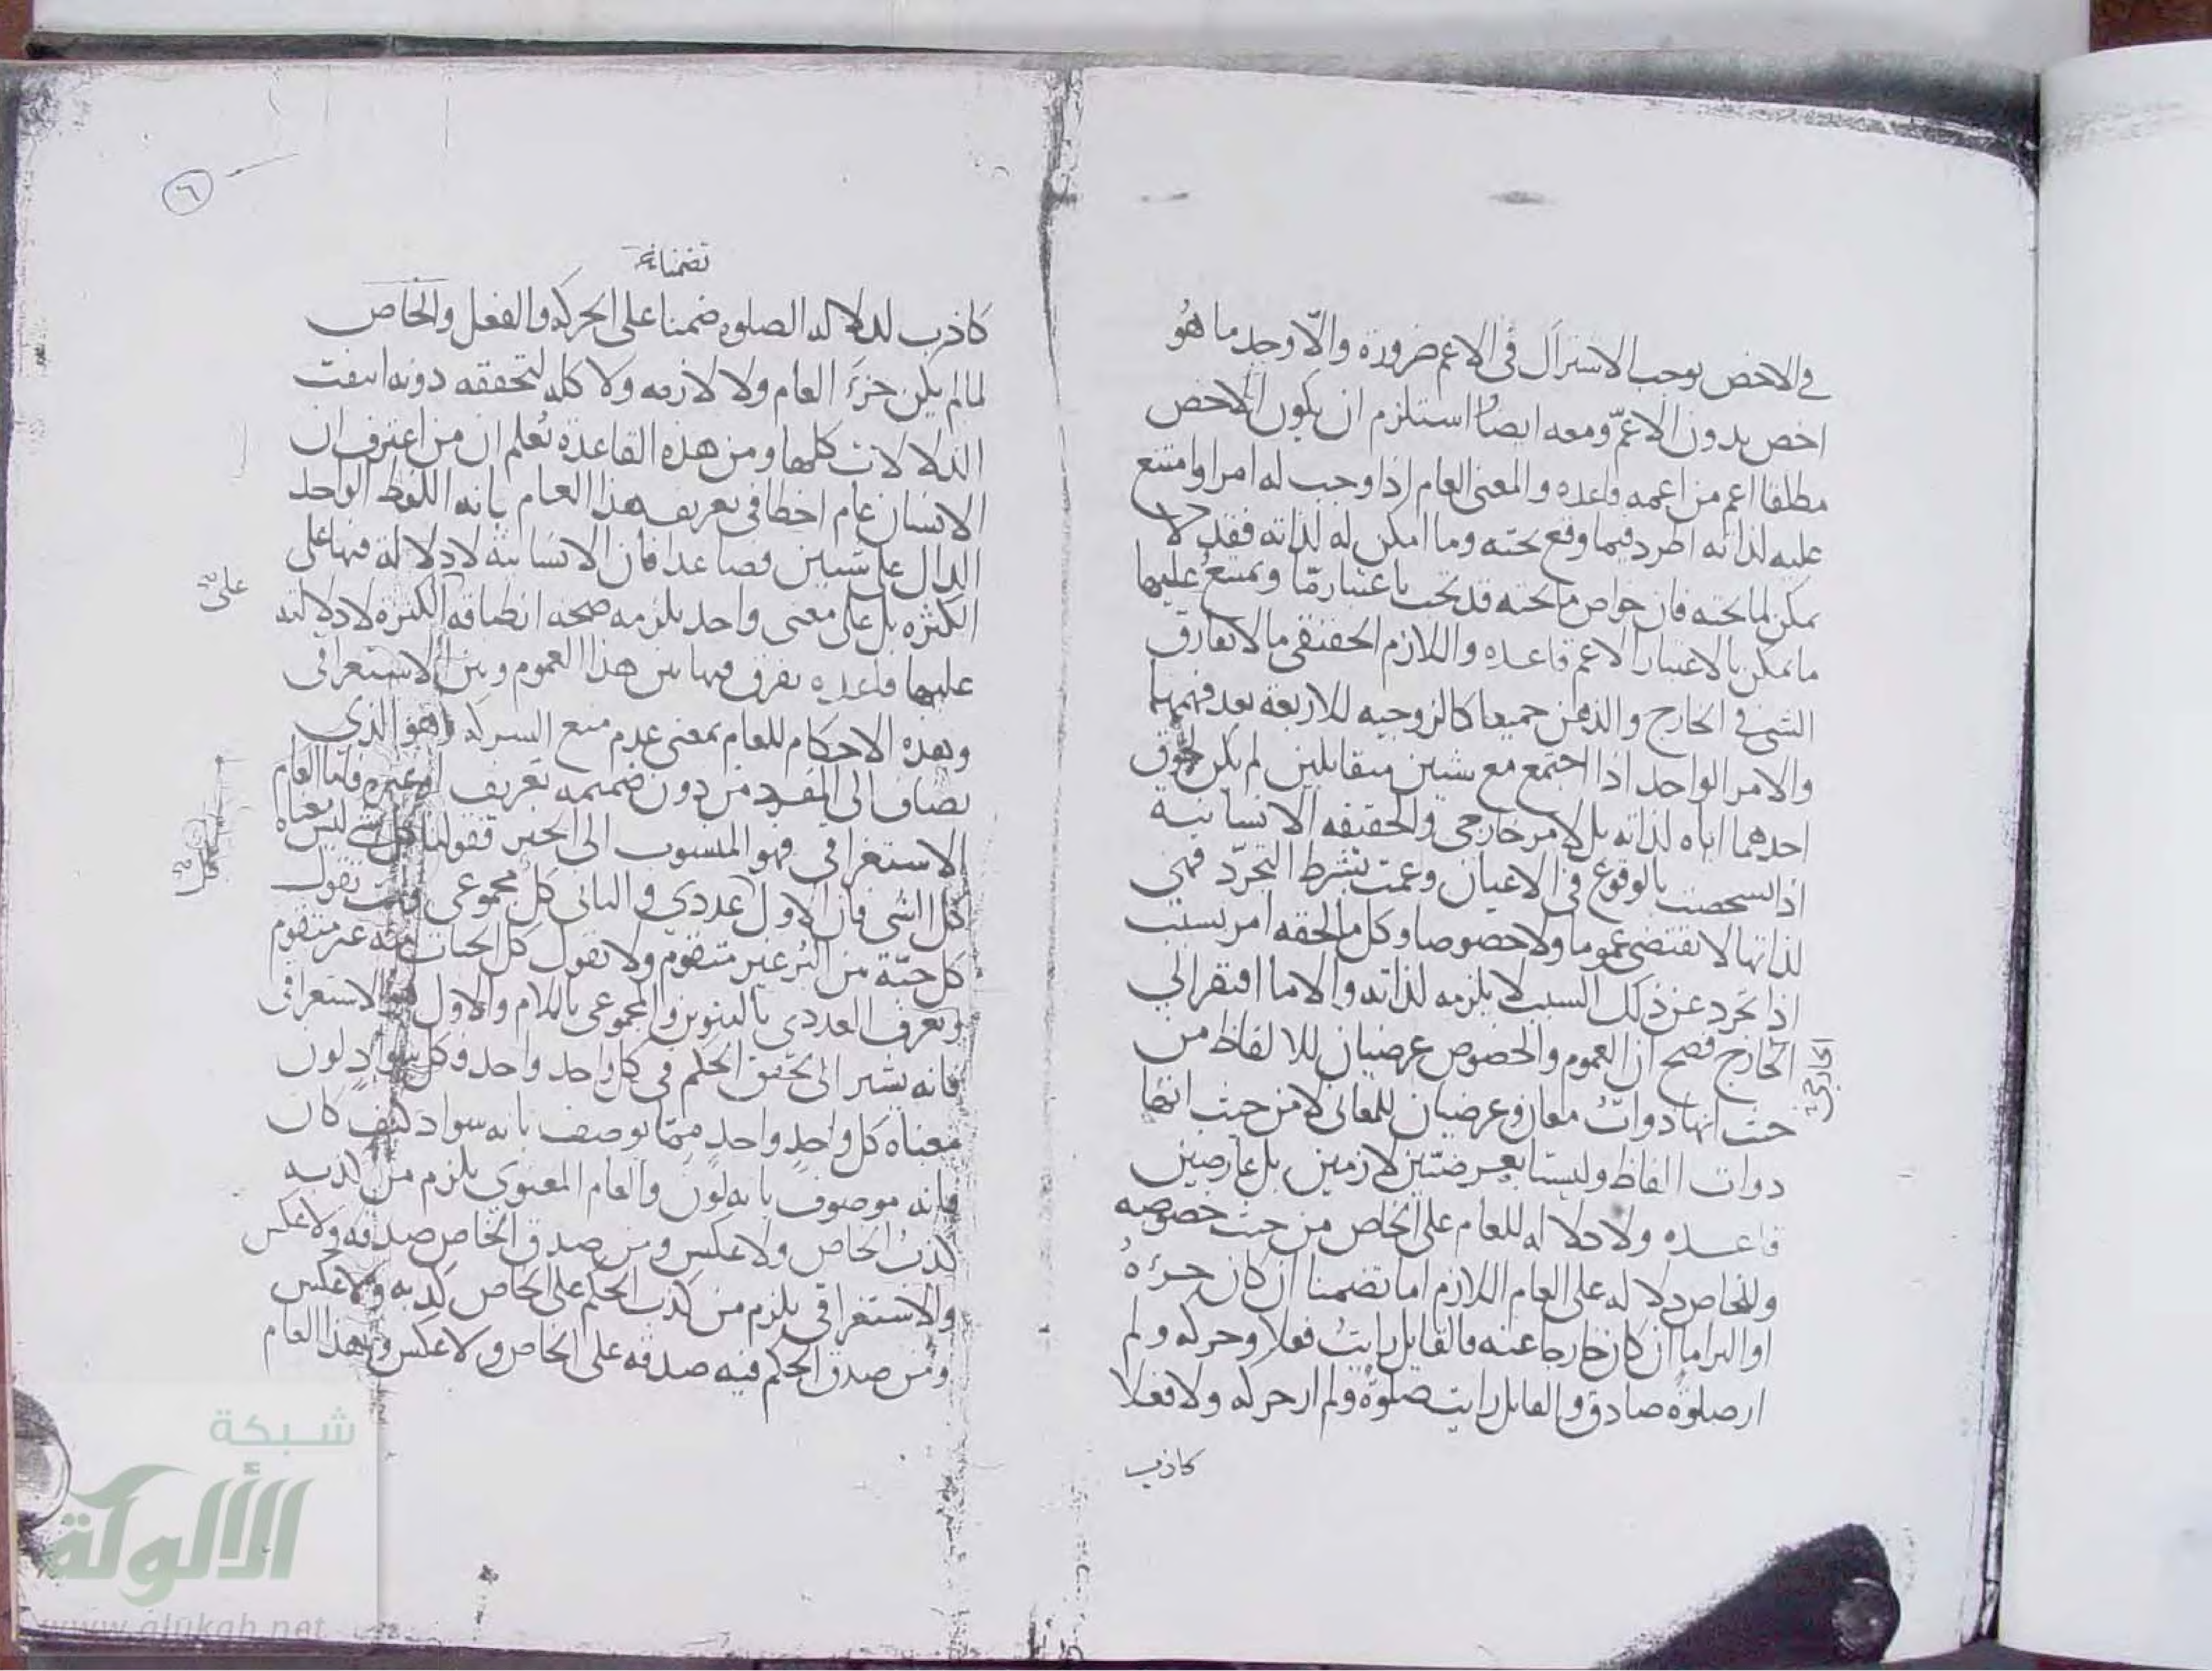 في الاخص يوجب الاشتراك في الاعم ضرورة والّا وجد ما هو
اخص بدون الاعمّ ومعه ايضًا استلزم ان يكون الاخص
مطلقا اعم من اعمه قاعده والمعنى العام اذا وجب له امر او امتنع
عليه لذاته اطرد فيما وقع تحته وما امكن له لذاته فقد لا
يمكن لما تحته فان خواص ما تحته قد تجب باعتبار مّا ويمتنع عليها
ما يمكن بالاعتبار الاعم قاعده واللازم الحقيقي ما لا يفارق
الشى في الخارج والذهن جميعا كالزوجيه للاربعة بعد فهمهما
والامر الواحد اذا اجتمع مع شيئين متقابلين لم يكن لحوق
احدهما اياه لذاته بل لامر خارجي والحقيقه الانسانية
اذا تشخصت بالوقوع في الاعيان وعمت بشرط التجرّد فهي
لذاتها لا تقتضى عموما ولا خصوصا وكل ما لحقه امر بسبب
اذا تجرد عن ذلك السبب لا يلزمه لذاته والا ما افتقر الي
الخارج فصح ان العموم والخصوص عرضيان للالفاظ من
الخارجي
حيث انها ذوات معان وعرضيان للمعاني لا من حيث انها
ذوات الفاظ وليستا بعرضيتين لازمين بل عارضين
قاعده ولا دلاله للعام على الخاص من حيث خصوصه
وللخاص دلاله على العام اللازم اما تضمنا ان كان جزءهُ
او التزاما ان كان خارجا عنه فالقايل رايتُ فعلا وحركه ولم
ار صلوة صادق والقايل رايت صلوة ولم ار حركه ولا فعلا
كاذب
٦
تضمنا
كاذب لدلاله الصلوه ضمنا على الحركه والفعل والخاص
لما لم يكن جزءَ العام ولا لازمه ولا كله لتحققه دونه انتفت
الدلالات كلها ومن هذه القاعدة تُعلم ان من اعترف ان
الانسان عام اخطا في تعريف هذا العام بانه اللفظ الواحد
الدال على شيئين فصاعدا فان الانسانية لا دلالة فيها على
على
الكثره بل على معنى واحد يلزمه صحه انطباقه الكثرة لا دلالته
عليها قاعده يفرق فيها بين هذا العموم وبين الاستغراقى
وهذه الاحكام للعام بمعنى عدم منع الشركه وهو الذي
يضاف الى المفرد من دون ضميمه تعريف او غيره فاما العام
الاستغراقي فهو المنسوب الى الخبر فقولنا كل شي ليس معناه
كل
كل الشي فان الاول عددي والثاني كل مجموعى وانت تقول
كل حبّة من البُر غير متقوم ولا تقول كل الحبات منه غير متقوم
ويعرف العددى بالتنوين والمجموعى باللام والاول هو الاستغراقى
فانه يشير الى تحقق الحكم في كل واحد واحد فكل سوادٍ لون
معناه كل واحدٍ واحدٍ ممّا يوصف بانه سواد كيف كان
فانه موصوف بانه لون والعام المعنوي يلزم من كذبه
كذبُ الخاص ولا عكس ومن صدق الخاص صدقه ولا عكس
والاستغراقي يلزم من كذب الحكم على الخاص كذبه ولا عكس
ومن صدق الحكم فيه صدقه على الخاص ولا عكس وهذا العام
شبكة
الألوكة
www.alukah.net